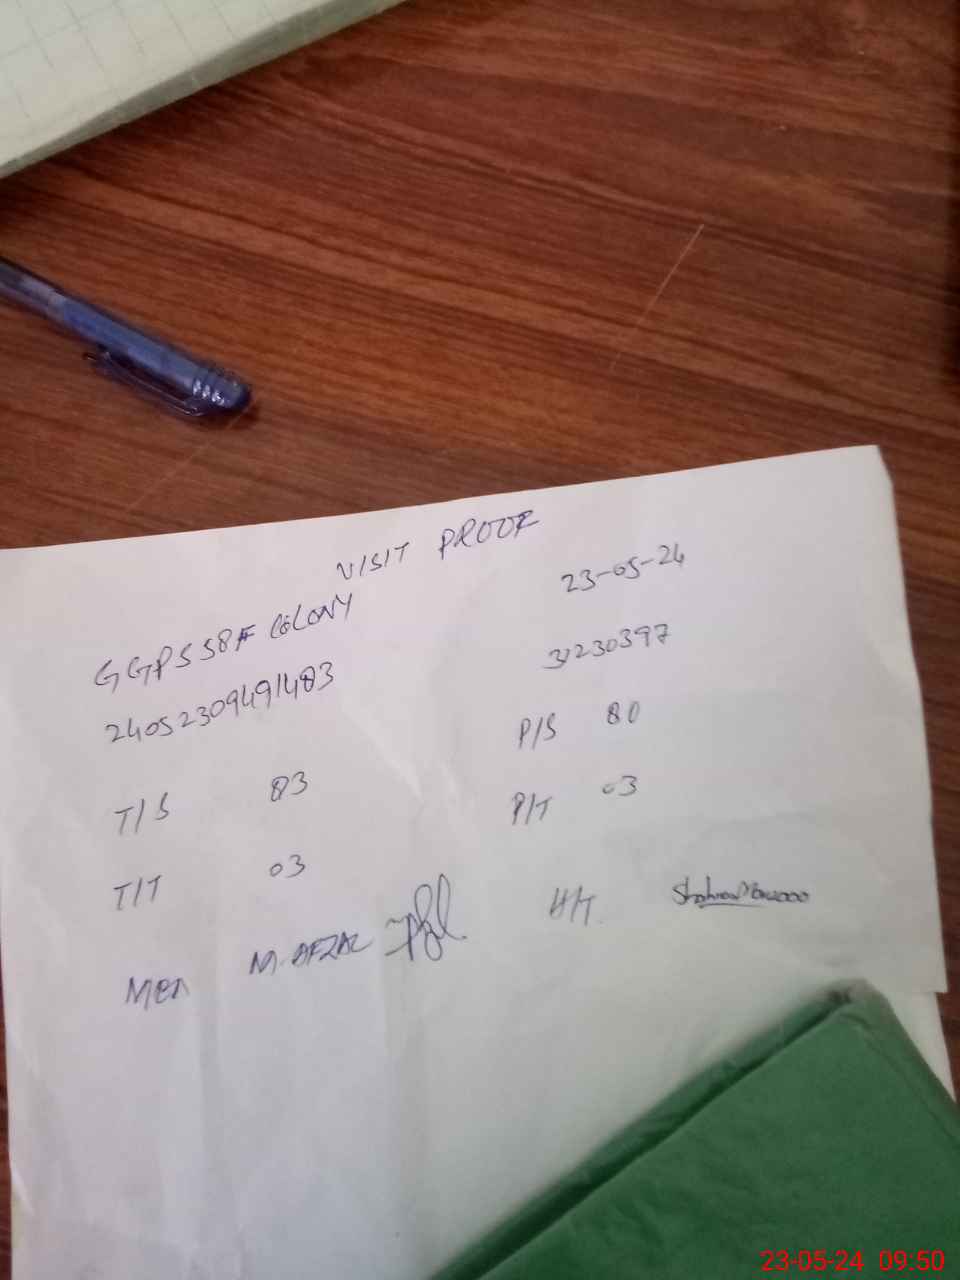 VISIT PROOF
GGPS 58F COLONY 23-05-24
24052309491483 31230397
T/S 83 P/S 80
T/T 03 P/T 03
MEA M. AFZAL H/T
23-05-24 09:50